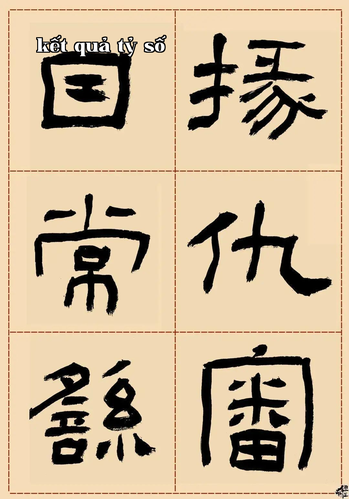 kết quả tỷ số
掾仇審
囯常繇